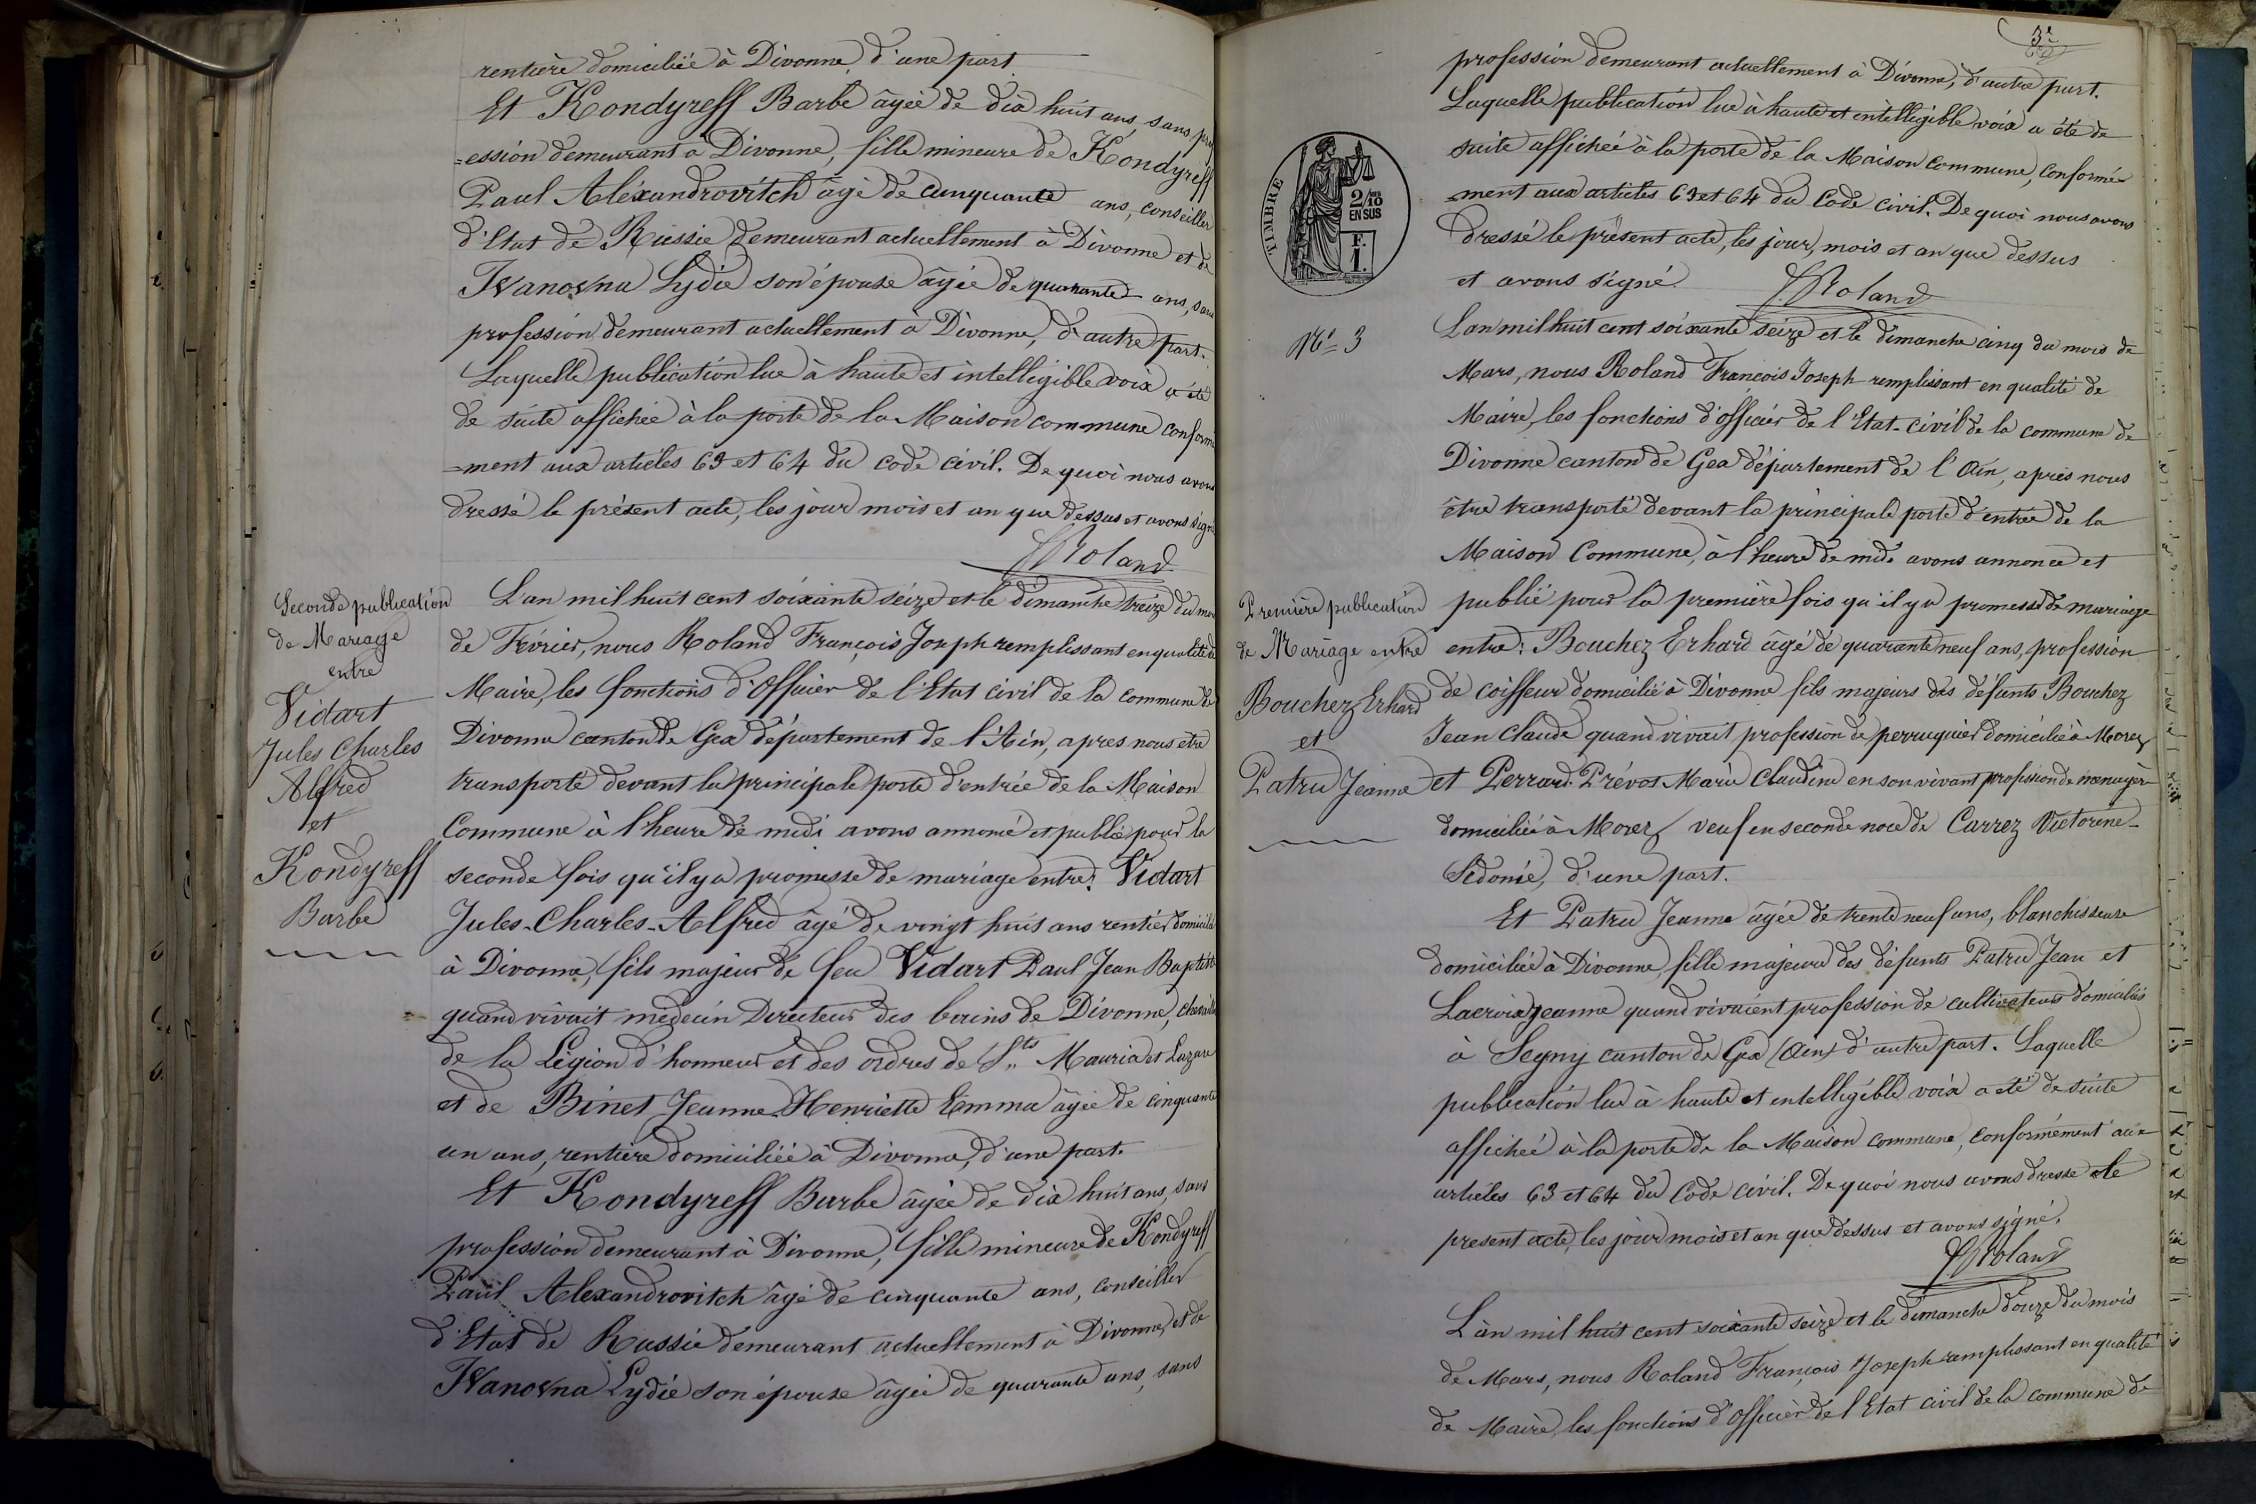 rentière domiciliée à Divonne, d'une part
Et Kondyreff Barbe âgée de dix huit ans, sans pro
=ession demeurant à Divonne, fille mineure de Kondyreff
Paul Aléxandrovitch âgé de cinquante ans, conseiller
d'Etat de Russie demeurant actuellement à Divonne et de
Ivanovna Lydie son épouse âgée de quarante ans, sans
profession demeurant actuellement à Divonne, d'autre part.
Laquelle publication lue à haute et intelligible voix a été
de suite affichée à la porte de la Maison commune conformé
=ment aux articles 63 et 64 du code civil. De quoi nous avons
dressé le présent acte, les jour mois et an que dessus et avons signé
Roland
Seconde publication
de Mariage
entre
Vidart
Jules Charles
Alfred
et
Kondyreff
Barbe
L'an mil huit cent soixante seize et le dimanche treize du mois
de Février, nous Roland François Joseph remplissant en qualité de
Maire, les fonctions d'Officier de l'Etat civil de la commune de
Divonne canton de Gex département de l'Ain, apres nous etre
transporté devant la principale porte d'entrée de la Maison
Commune à l'heure de midi avons annoncé et publié pour la
seconde fois qu'il y a promesse de mariage entre: Vidart
Jules-Charles-Alfred âgé de vingt huit ans rentier domicilié
à Divonne, fils majeur de feu Vidart Paul Jean Baptiste
quand vivait médecin Directeur des bains de Divonne, chevalier
de la Légion d'honneur et des ordres de Sts Mauria et Lazare
et de Binet Jeanne Henriette Emma âgée de cinquante
un ans, rentière domiciliée à Divonne, d'une part.
Et Kondyreff Barbe âgée de dix huit ans, sans
profession demeurant à Divonne, fille mineure de Kondyreff
Paul Alexandrovitch âgé de cinquante ans, conseiller
d'Etat de Russie demeurant actuellement à Divonne, et de
Ivanovna Lydie son épouse âgée de quarante ans, sans
profession demeurant actuellement à Divonne, d'autre part.
Laquelle publication lue à haute et intelligible voix a été de
suite affichée à la porte de la Maison commune, conformé-
=ment aux articles 63 et 64 du Code civil. De quoi nous avons
dressé le présent acte, les jour, mois et an que dessus
et avons signé.
Roland
TIMBRE
2/10
EN SUS
F.
1.
No 3
L'an mil huit cent soixante seize et le dimanche cinq du mois de
Mars, nous Roland François Joseph remplissant en qualité de
Maire, les fonctions d'Officier de l'Etat-civil de la commune de
Divonne canton de Gex département de l'Ain, après nous
être transporté devant la principale porte d'entrée de la
Maison Commune, à l'heure de midi avons annoncé et
publié pour la première fois qu'il y a promesse de mariage
entre: Bouchez Erhard âgé de quarante neuf ans, profession
de coiffeur domicilié à Divonne fils majeur des défunts Bouchez
Jean Claude quand vivait profession de perruquier domicilié à Morez
et Perrard Prévot Marie Claudine en son vivant profession de menagère
domiciliée à Morez veuf en seconde noce de Carrez Victorine-
Sidonie, d'une part.
Première publication
de Mariage entre
Bouchez Erhard
et
Patru Jeanne
Et Patru Jeanne âgée de trente neuf ans, blanchisseuse
domiciliée à Divonne, fille majeure des défunts Patru Jean et
Lacroix Jeanne quand vivaient profession de cultivateurs domiciliés
à Segny canton de Gex (Ain) d'autre part. Laquelle
publication lue à haute et intelligible voix a été de suite
affichée à la porte de la Maison commune, conformément aux
articles 63 et 64 du Code civil. De quoi nous avons dressé le
present acte, les jour mois et an que dessus et avons signé.
Roland
L'an mil huit cent soixante seize et le dimanche douze du mois
de Mars, nous Roland François Joseph remplissant en qualité
de Maire, les fonctions d'Officier de l'Etat civil de la commune de